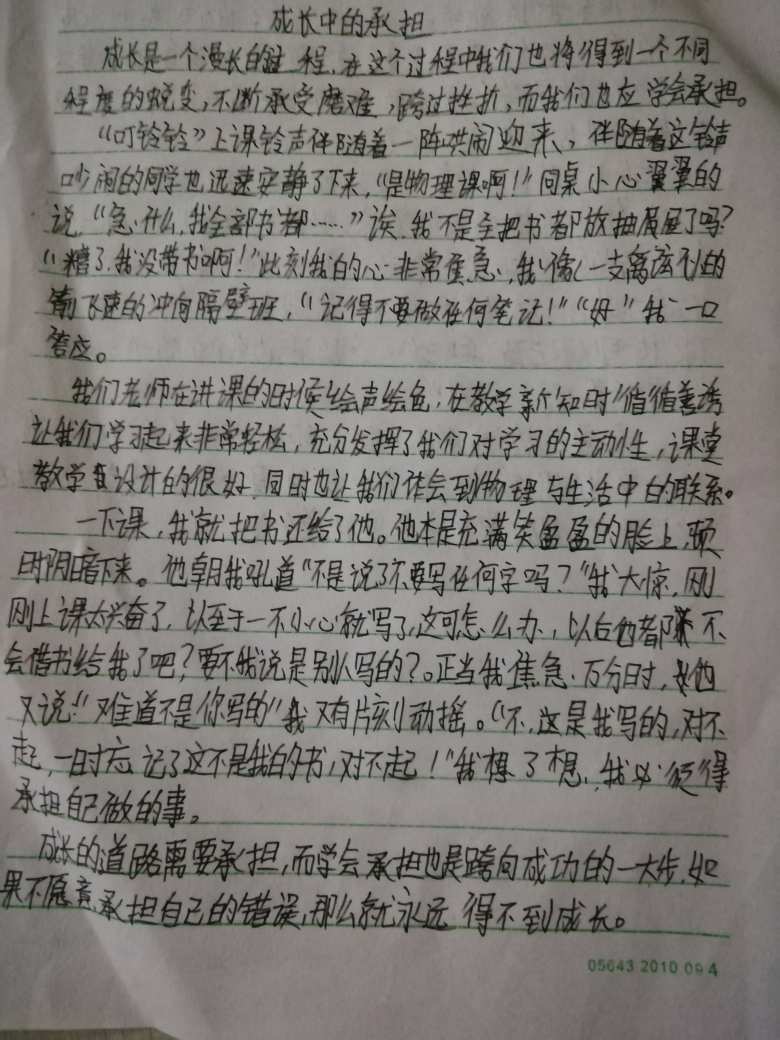 成长中的承担
成长是一个漫长的 程,在这个过程中我们也将得到一个不同
程度的蜕变,不断承受磨难,跨过挫折,而我们也应学会承担。
“叮铃铃”上课铃声伴随着一阵哄闹迎来,伴随着这铃声
吵闹的同学也迅速安静了下来,“是物理课啊!”同桌小心翼翼的
说,“急什么,我全部书都……”诶,我不是全把书都放抽屉了吗?
“糟了,我没带书啊!”此刻我的心非常焦急,我像一支离弦的
箭飞速的冲向隔壁班,“记得不要做任何笔记!”“好”我一口
答应。
我们老师在讲课的时候绘声绘色,在教学新知时循循善诱
让我们学习起来非常轻松,充分发挥了我们对学习的主动性,课堂
教学 设计的很好,同时也让我们体会到物理与生活中的联系。
一下课,我就把书还给了他。他本是充满笑盈盈的脸上,顿
时阴暗下来。他朝我吼道“不是说了不要写任何字吗?”我大惊,刚
刚上课太兴奋了,以至于一不小心就写了,这可怎么办,以后他都 不
会借书给我了吧?要不我说是别人写的?。正当我焦急万分时,他
又说!“难道不是你写的”我又有片刻动摇。“不,这是我写的,对不
起,一时忘记了这不是我的书,对不起!”我想了想,我必须得
承担自己做的事。
成长的道路需要承担,而学会承担也是跨向成功的一大步,如
果不愿意承担自己的错误,那么就永远得不到成长。
05643 2010 09 4